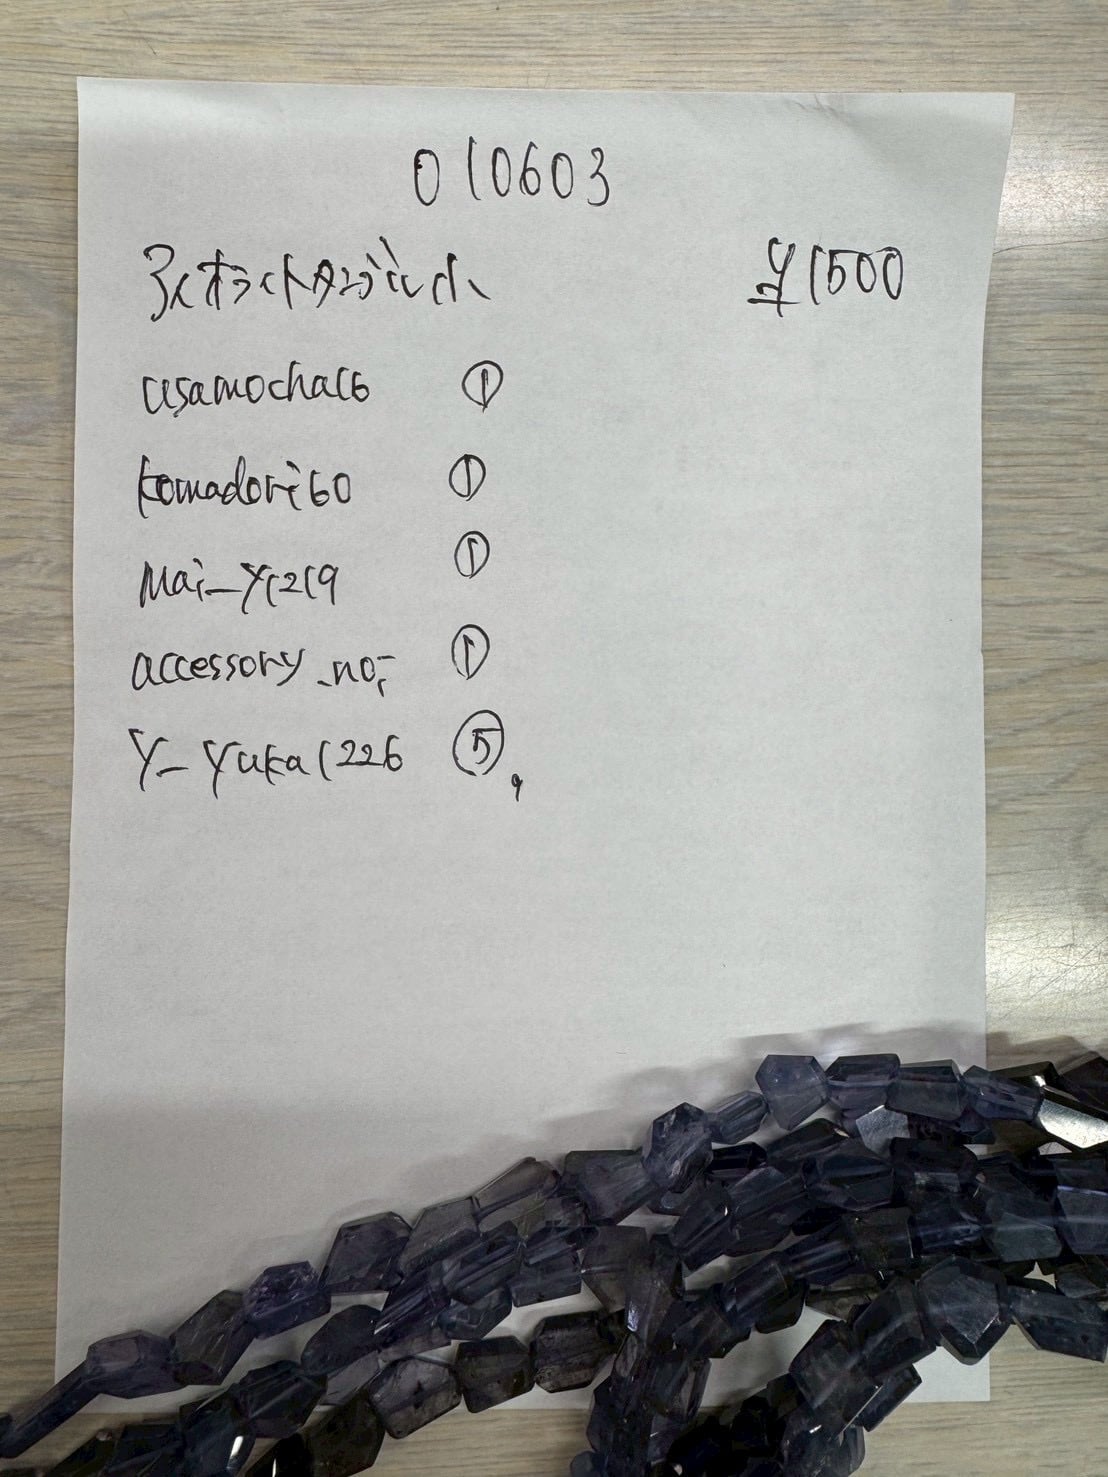 010603
アイオライトタンブル小 ¥1500
usamocha16 ①
komadori60 ①
Mai_y1219 ①
accessory_noi ①
Y_Yuka1226 ⑤